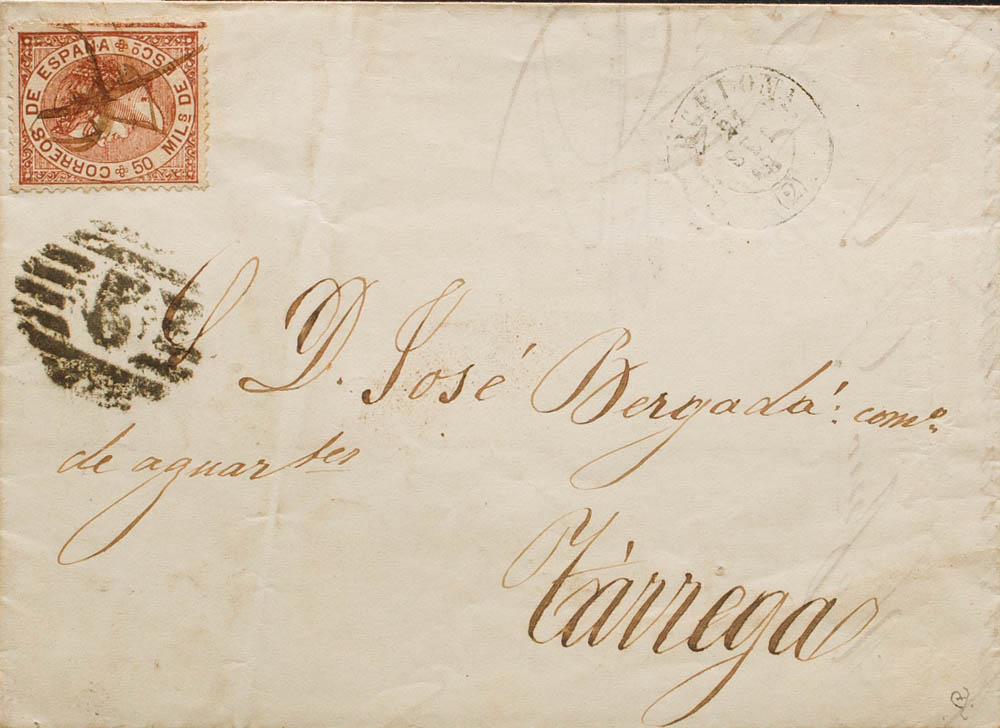 CORREOS DE ESPAÑA
50 MIL.s DE ESC.o
(2)
S. D. José Bergadá: com.o
de aguar.tes
Tárrega